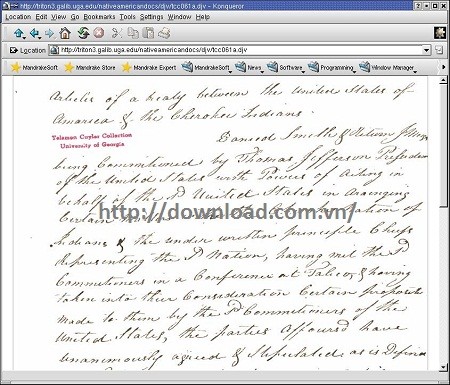 http://triton3.galib.uga.edu/nativeamericandocs/djv/tcc061a.djv - Konqueror
Location Edit View Go Bookmarks Tools Settings Window Help
Location http://triton3.galib.uga.edu/nativeamericandocs/djv/tcc061a.djv
MandrakeSoft Mandrake Store Mandrake Expert MandrakeSoft News Software Programming Window Manager
Articles of a treaty between the United States of
America & the Cherokee Indians.
Telamon Cuyler Collection
University of Georgia
Daniel Smith & Return J.
being Commitioned by Thomas Jefferson President
of the United States with Powers of Acting in
behalf of the Sd United States in arainging
Certain
http://download.com.vn/
Nation of
Indians & the under written principle Chiefs
Representing the Sd Nation, having met the Sd
Commitioners in a Conference at Talico, & having
taken into their Consideration Certain
made to them by the Sd Commitioners of the
United States, the parties have
unanimously agreed & Stipulated as is